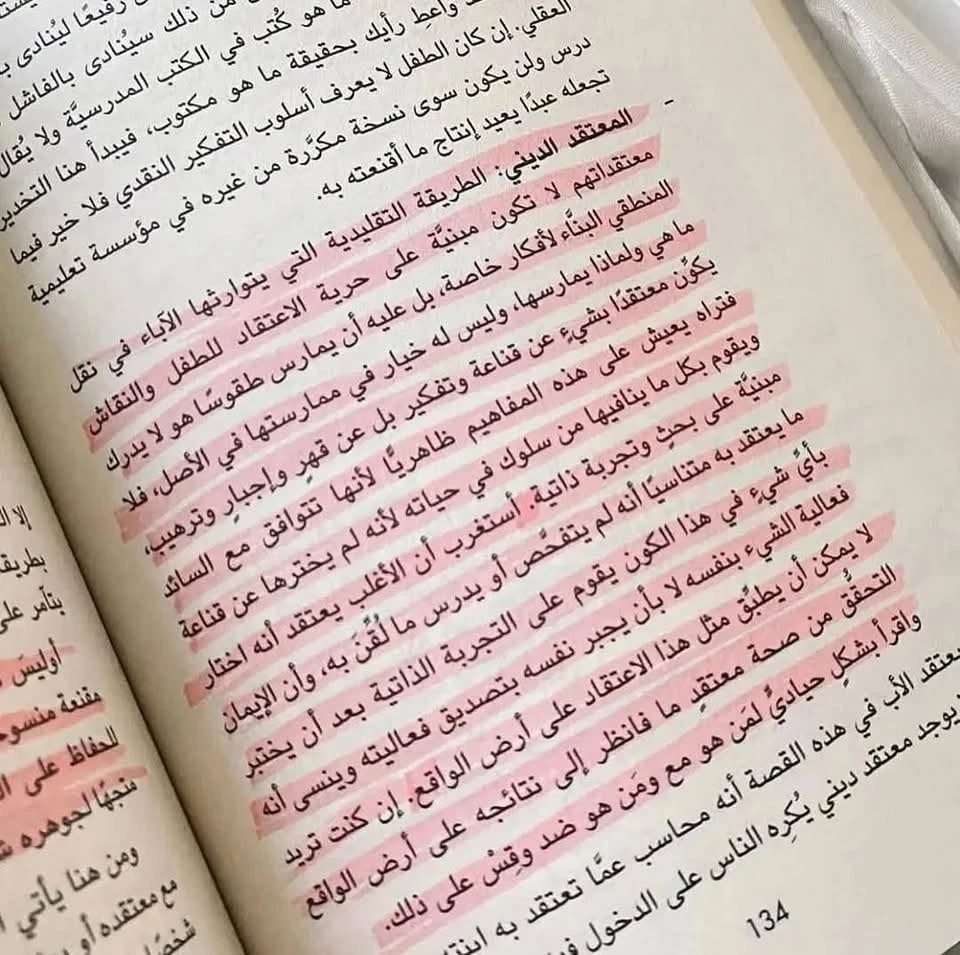 رفيعًا ليُنادى
من ذلك سيُنادى بالفاشل
ما هو كُتب في الكتب المدرسيَّة ولا يُقال
واعطِ رأيك بحقيقة ما هو مكتوب، فيبدأ هنا التخدير
العقلي. إن كان الطفل لا يعرف أسلوب التفكير النقدي فلا خير فيما
درس ولن يكون سوى نسخة مكرَّرة من غيره في مؤسسة تعليمية
تجعله عبدًا يعيد إنتاج ما أقنعته به.
- المعتقد الديني: الطريقة التقليدية التي يتوارثها الآباء في نقل
معتقداتهم لا تكون مبنيَّة على حرية الاعتقاد للطفل والنقاش
المنطقي البنَّاء لأفكار خاصة، بل عليه أن يمارس طقوسًا هو لا يدرك
ما هي ولماذا يمارسها، وليس له خيار في ممارستها في الأصل، فلا
يكوِّن معتقدًا بشيءٍ عن قناعة وتفكير بل عن قهرٍ وإجبارٍ وترهيب،
فتراه يعيش على هذه المفاهيم ظاهريًّا لأنها تتوافق مع السائد
ويقوم بكل ما ينافيها من سلوك في حياته لأنه لم يخترها عن قناعة
مبنيَّة على بحثٍ وتجربة ذاتية. أستغرب أن الأغلب يعتقد أنه اختار
ما يعتقد به متناسيًا أنه لم يتفحَّص أو يدرس ما لُقِّنَ به، وأن الإيمان
بأيِّ شيءٍ في هذا الكون يقوم على التجربة الذاتية بعد أن يختبر
فعالية الشيء بنفسه لا بأن يجبر نفسه بتصديق فعاليته وينسى أنه
لا يمكن أن يطبِّق مثل هذا الاعتقاد على أرض الواقع. إن كنت تريد
التحقُّق من صحة معتقدٍ ما فانظر إلى نتائجه على أرض الواقع
واقرأ بشكلٍ حياديٍّ لمَن هو مع ومَن هو ضد وقِسْ على ذلك.
يعتقد الأب في هذه القصة أنه محاسب عمَّا تعتقد به ابنته
يوجد معتقد ديني يُكرِه الناس على الدخول
134
إلا
بطريقة
يتآمر على
أوليس
مقنعة
للحفاظ على
لجوهره
ومن هنا يأتي
مع معتقده أو